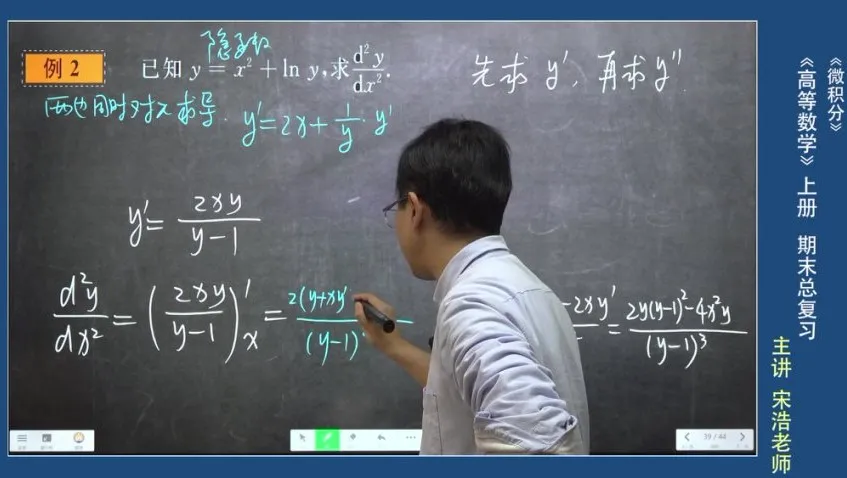 例 2
已知 y = x² + ln y, 求 d²y/dx².
隐函数
先求 y′, 再求 y″.
两边同时对x求导. y′ = 2x + 1/y · y′
y′ = 2xy/(y−1)
d²y/dx² = (2xy/(y−1))′ₓ = 2(y+xy′ /(y−1) −2xy′ = (2y(y−1)²−4x²y)/(y−1)³
39 / 44
《微积分》
《高等数学》上册 期末总复习
主讲 宋浩老师